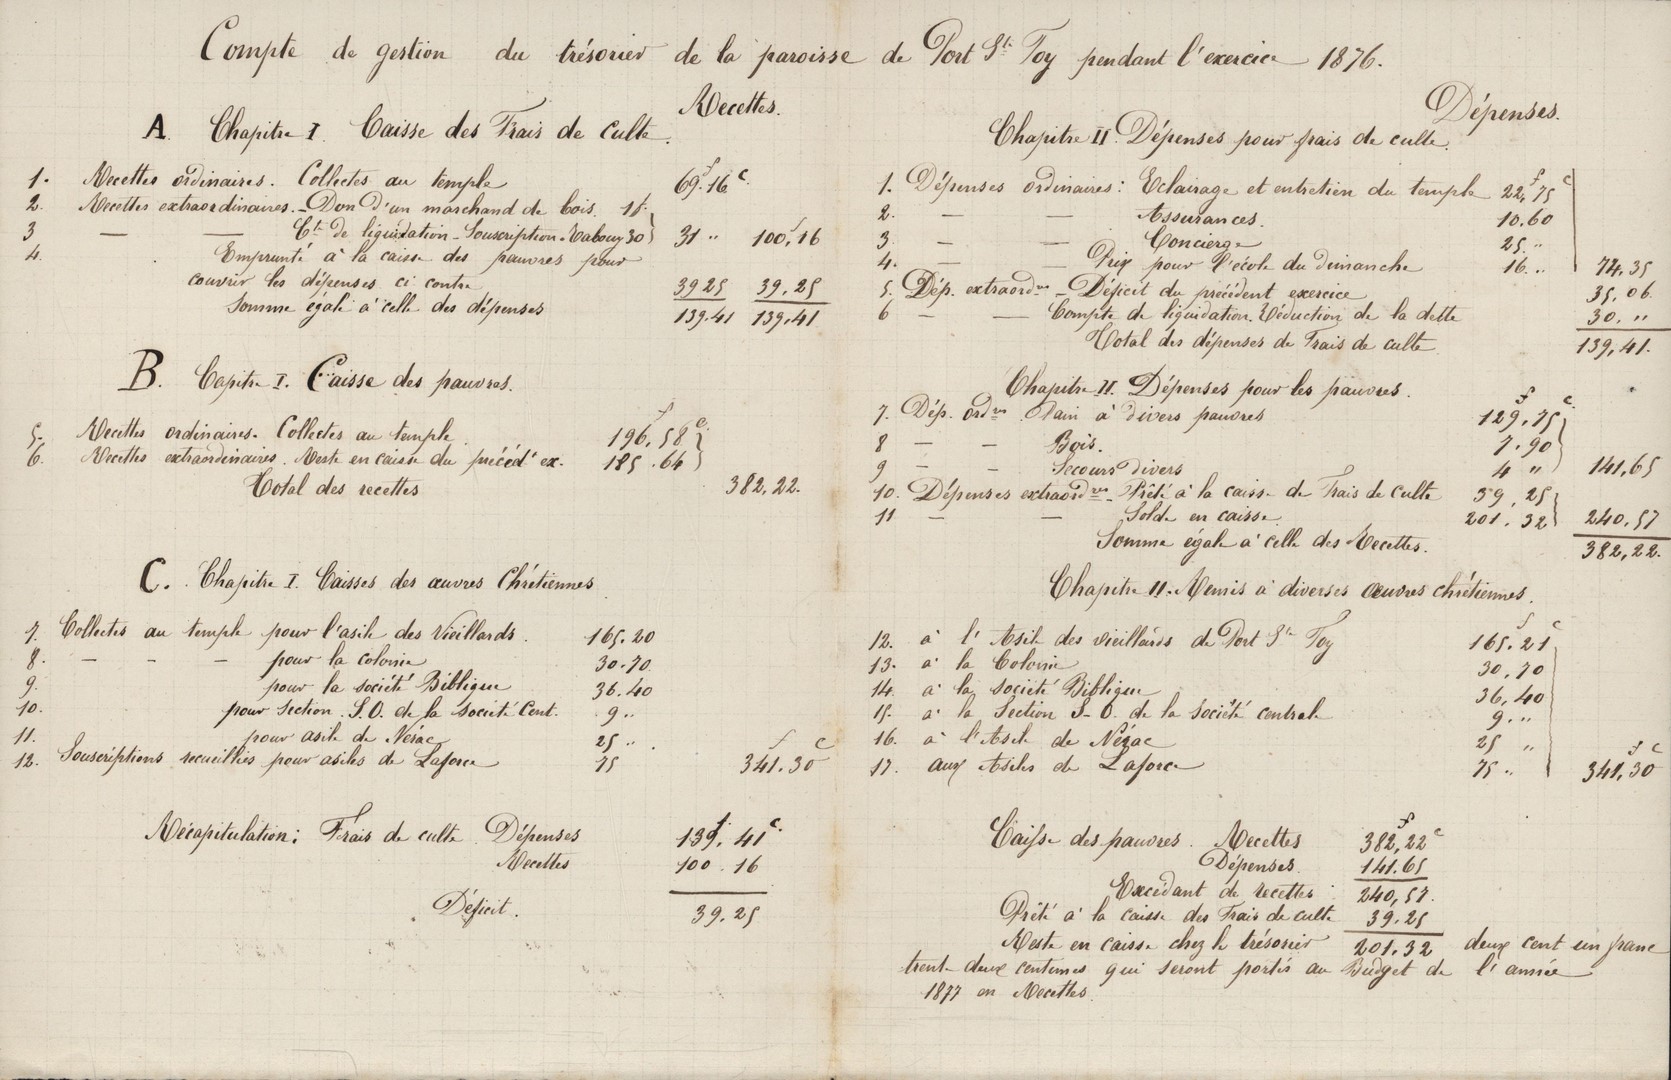 Compte de gestion du trésorier de la paroisse de Port Ste Foy pendant l'exercice 1876.
Recettes.
A. Chapitre I. Caisse des Frais de Culte.
1. Recettes ordinaires. Collectes au temple 69f.16c.
2. Recettes extraordinaires. - Don d'un marchand de bois. 1f.
3 — — Cte de liquidation - Souscription - Rabouy 30 31 " 100f,16
4. Emprunté à la caisse des pauvres pour
couvrir les dépenses ci contre 39 25 39,25
Somme égale à celle des dépenses 139.41 139,41
B. Capitre I. Caisse des pauvres.
5. Recettes ordinaires. Collectes au temple 196f,58c
6. Recettes extraordinaires. Reste en caisse du précédt ex. 185.64
Total des recettes 382,22.
C. Chapitre I. Caisses des œuvres Chrétiennes
7. Collectes au temple pour l'asile des Vieillards. 165.20
8. - - - pour la colonie 30.70
9. pour la société Biblique 36.40
10. pour Section S.O. de la Société Cent. 9 "
11. pour asile de Nérac 25 " .
12. Souscriptions recueillies pour asiles de Laforce 75 341f.30c
Récapitulation: Frais de culte Dépenses 139f,41c.
Recettes 100.16
Déficit. 39.25
Dépenses.
Chapitre II. Dépenses pour frais de culte.
1. Dépenses ordinaires: Eclairage et entretien du temple 22f,75c
2. — — Assurances. 10.60
3. — — Concierge 25 "
4. — — Prix pour l'école du dimanche 16. " 74,35
5. Dép. extraordres - Déficit du précédent exercice 35,06
6 — — Compte de liquidation. Réduction de la dette 30. "
Total des dépenses de Frais de culte 139,41.
Chapitre II. Dépenses pour les pauvres.
7. Dép. ordres Pain à divers pauvres 129f,75c
8 — - Bois. 7.90
9 — - Secours divers 4 " 141,65
10. Dépenses extraordres - Prêté à la caisse de Frais de culte 39,25
11 — — Solde en caisse 201,32 240,57
Somme égale à celle des Recettes. 382,22.
Chapitre II. Remis à diverses œuvres chrétiennes.
12. à l'Asile des vieillards de Port Ste Foy 165f.21c
13. à la Colonie 30,70
14. à la société Biblique 36,40
15. à la Section S-O. de la Société centrale 9. "
16. à l'Asile de Nérac 25 "
17. aux Asiles de Laforce 75 " 341f,30c
Caisse des pauvres. Recettes 382f,22c
Dépenses. 141.65
Excédant de recettes 240,57.
Prêté à la caisse des Frais de culte 39.25
Reste en caisse chez le trésorier 201.32 deux cent un franc
trente deux centimes qui seront portés au Budget de l'année
1877 en Recettes.